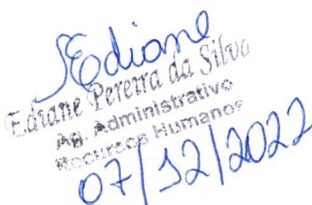 Ediane
Ediane Pereira da Silva
Ag. Administrativo
Recursos Humanos
07/12/2022